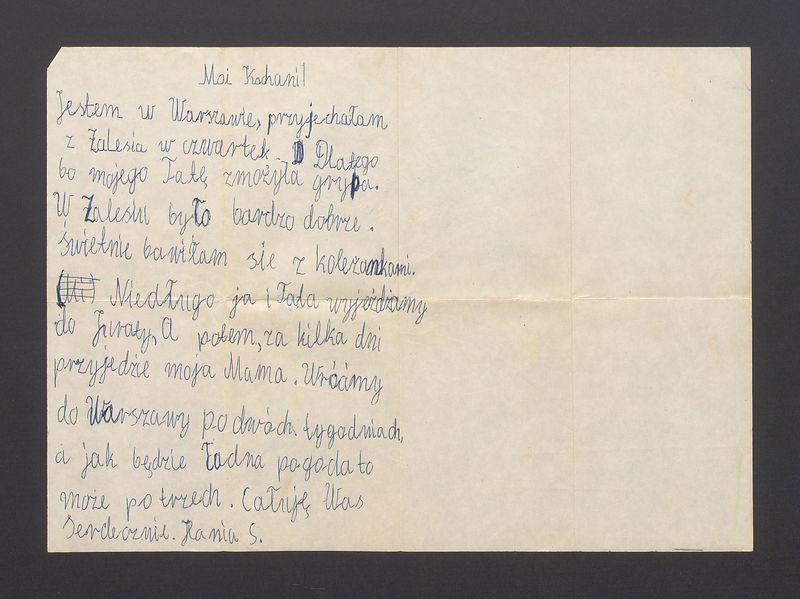 Moi Kochani!
Jestem w Warszawie, przyjechałam
z Zalesia w czwartek. Dlatego
bo mojego Tatę zmożyła grypa.
W Zalesiu było bardzo dobrze.
świetnie bawiłam sie z koleżankami.
Niedługo ja i Tata wyjeżdżamy
do Juraty, A potem, za kilka dni
przyjedzie moja Mama. Wróćimy
do Warszawy po dwóch tygodniach,
a jak będzie ładna pogoda to
może po trzech. Całuję Was
Serdecznie. Hania S.